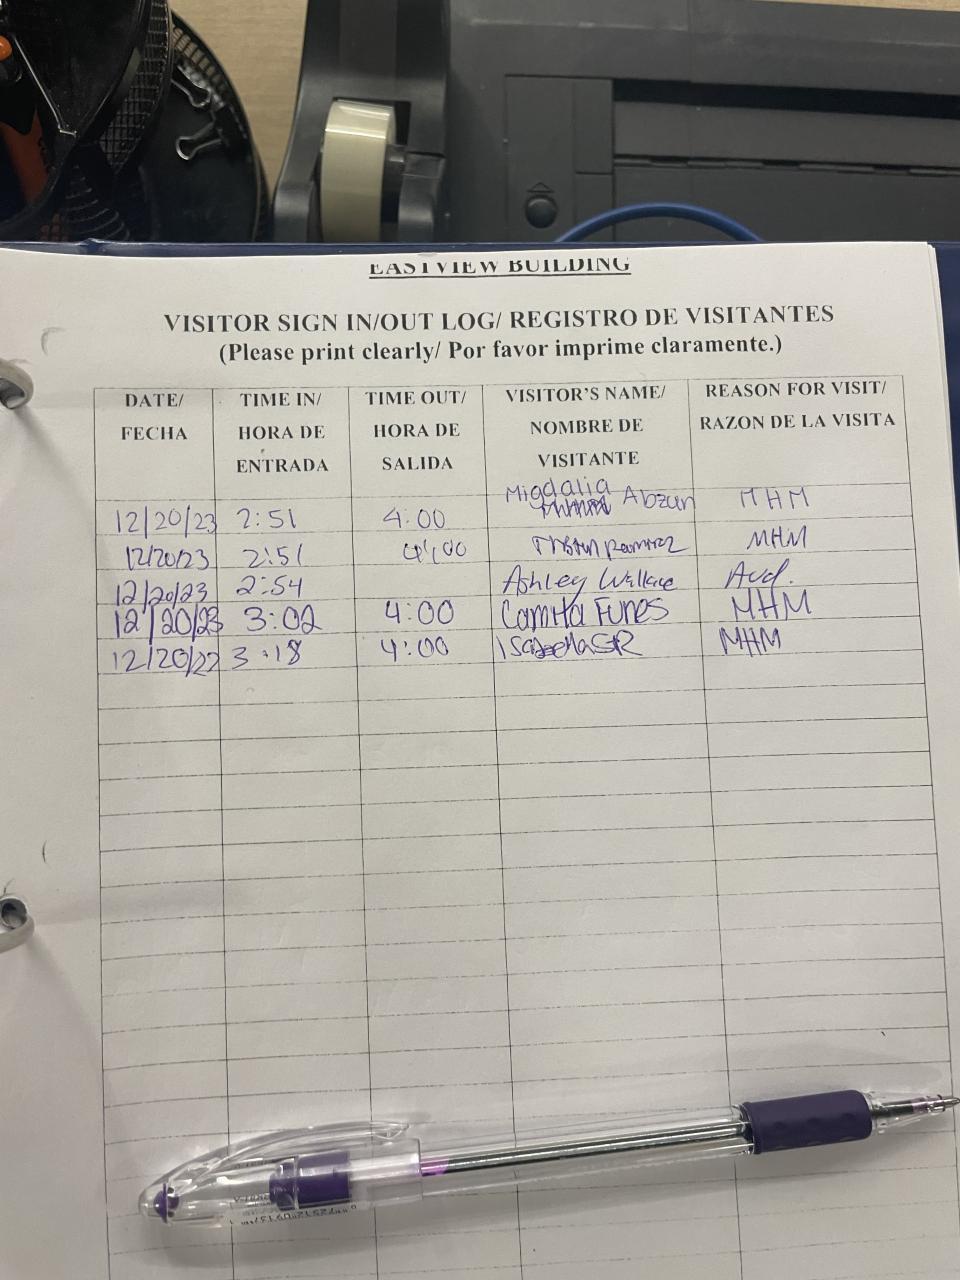 EASTVIEW BUILDING
VISITOR SIGN IN/OUT LOG/ REGISTRO DE VISITANTES
(Please print clearly/ Por favor imprime claramente.)
DATE/ FECHA TIME IN/ HORA DE ENTRADA TIME OUT/ HORA DE SALIDA VISITOR'S NAME/ NOMBRE DE VISITANTE REASON FOR VISIT/ RAZON DE LA VISITA
12/20/23 2:51 4:00 Migdalia Abzun MHM
12/20/23 2:51 4:00 Ramirez MHM
12/20/23 2:54 Ashley Wallace Aud.
12/20/23 3:02 4:00 Camila Funes MHM
12/20/22 3:18 4:00 MHM